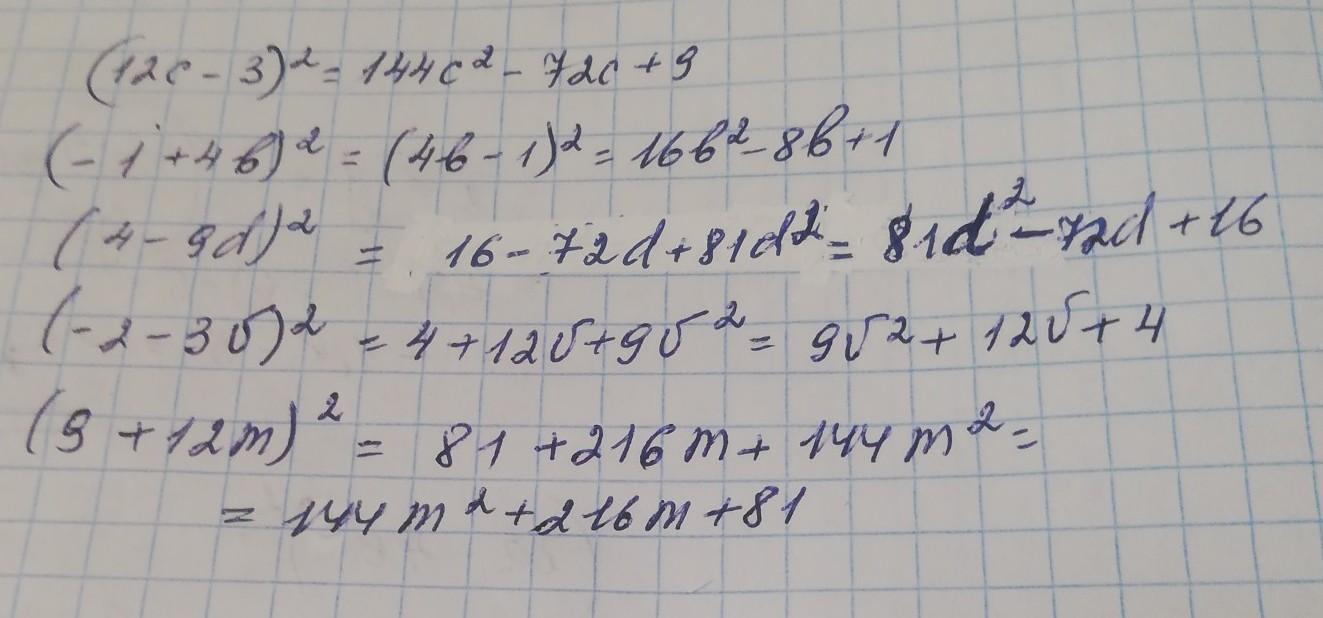 (12c - 3)² = 144c² - 72c + 9
(-1 + 4b)² = (4b - 1)² = 16b² - 8b + 1
(4 - 9d)² = 16 - 72d + 81d² = 81d² - 72d + 16
(-2 - 3v)² = 4 + 12v + 9v² = 9v² + 12v + 4
(9 + 12m)² = 81 + 216m + 144m² =
= 144m² + 216m + 81